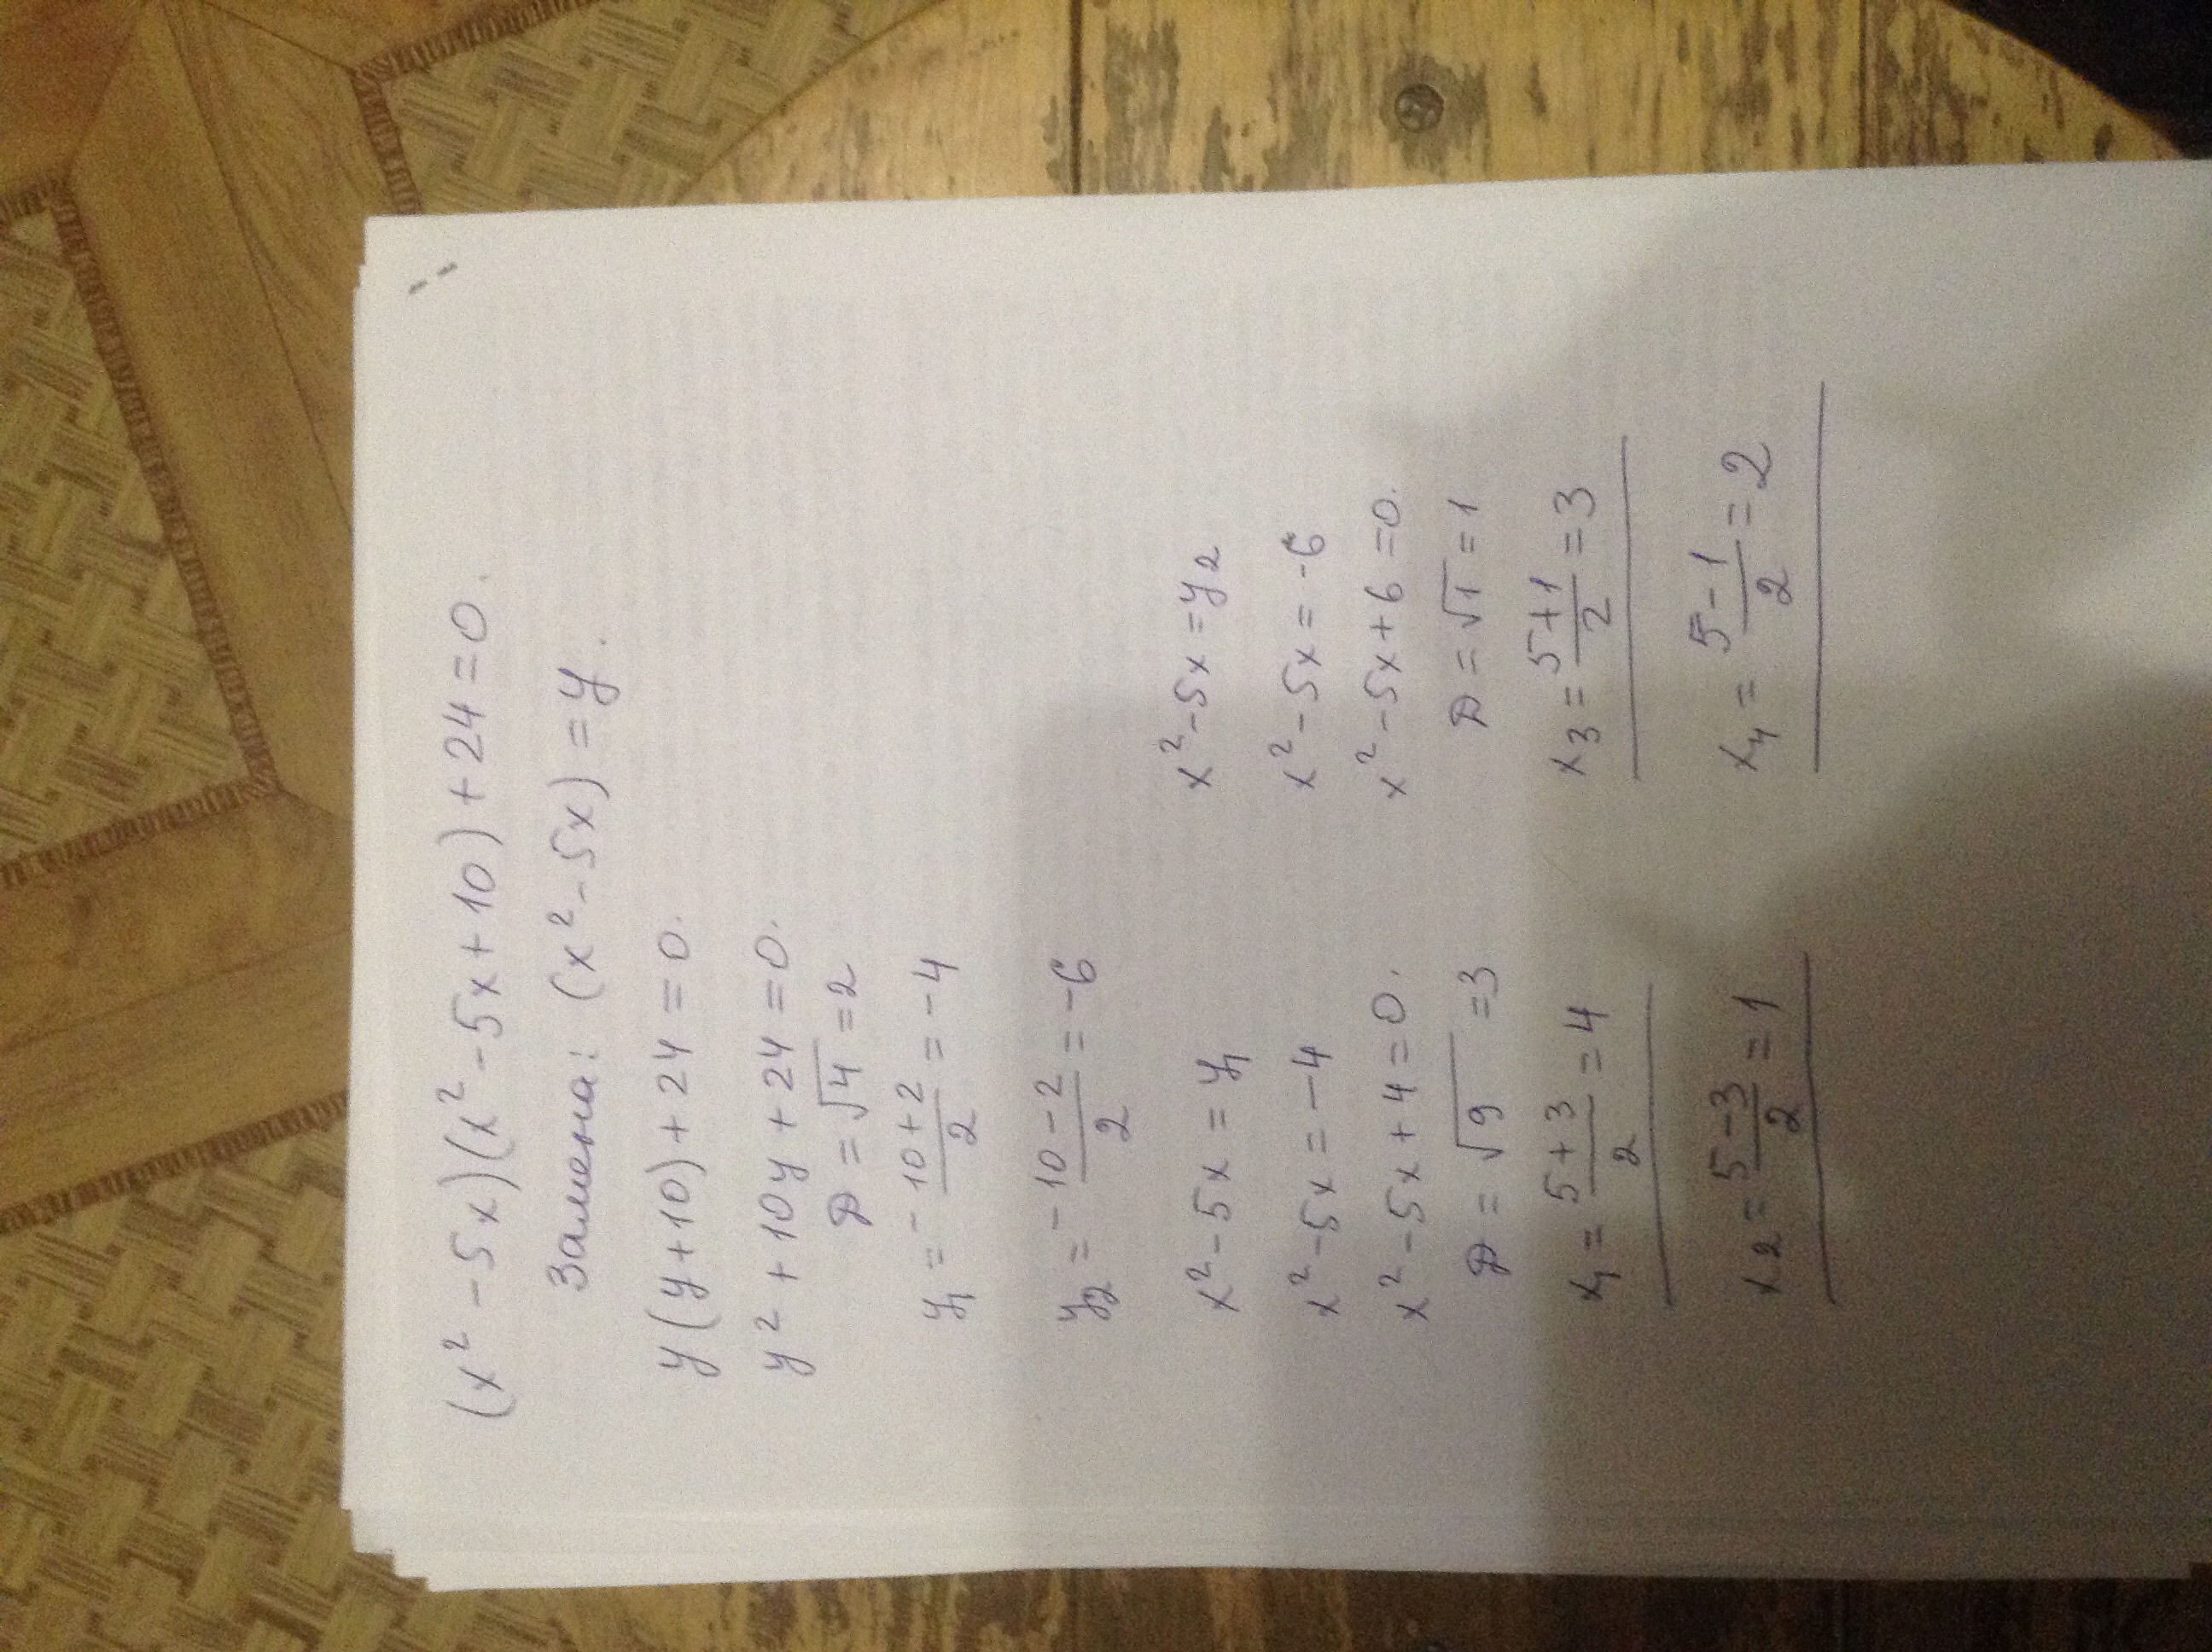 (x² - 5x)(x² - 5x + 10) + 24 = 0.
Замена: (x² - 5x) = y.
y(y + 10) + 24 = 0.
y² + 10y + 24 = 0.
D = √4 = 2
y₁ = -10+2/2 = -4
y₂ = -10-2/2 = -6
x² - 5x = y₁
x² - 5x = -4
x² - 5x + 4 = 0.
D = √9 = 3
x₁ = 5+3/2 = 4
x₂ = 5-3/2 = 1
x² - 5x = y₂
x² - 5x = -6
x² - 5x + 6 = 0.
D = √1 = 1
x₃ = 5+1/2 = 3
x₄ = 5-1/2 = 2